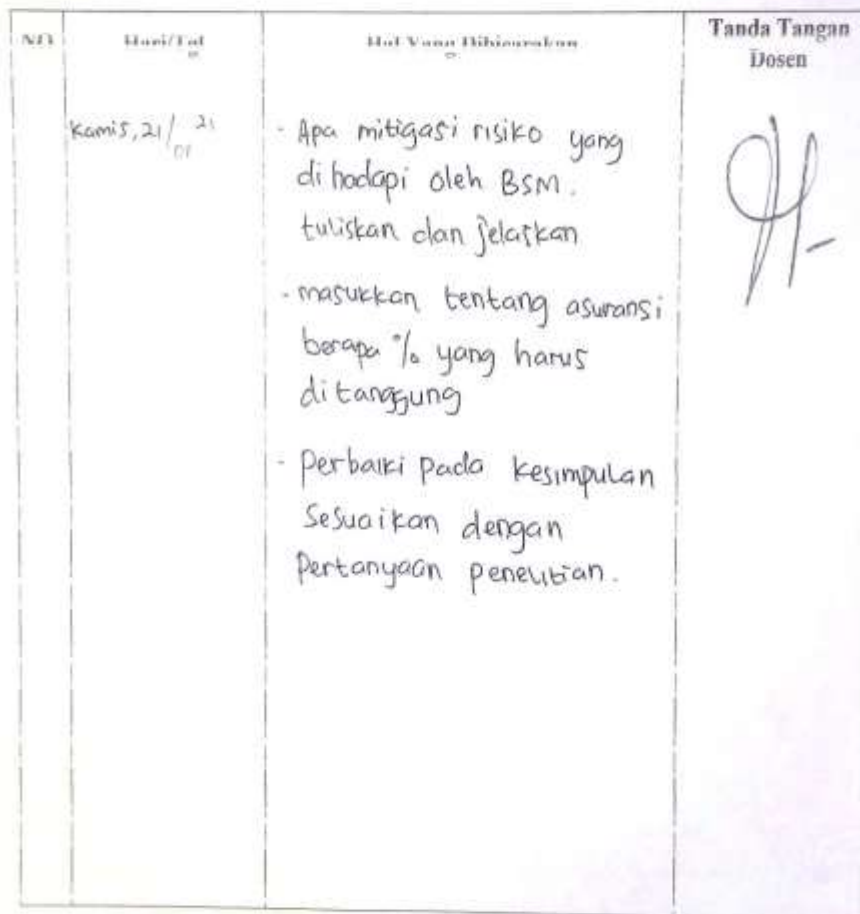 NO
Hari/Tgl
Hal Yang Dibicarakan
Tanda Tangan
Dosen
Kamis, 21/01 21
- Apa mitigasi risiko yang
di hadapi oleh BSM.
tuliskan dan jelaskan
- masukkan tentang asuransi
berapa % yang harus
di tanggung
- Perbaiki pada kesimpulan
Sesuaikan dengan
Pertanyaan penelitian.